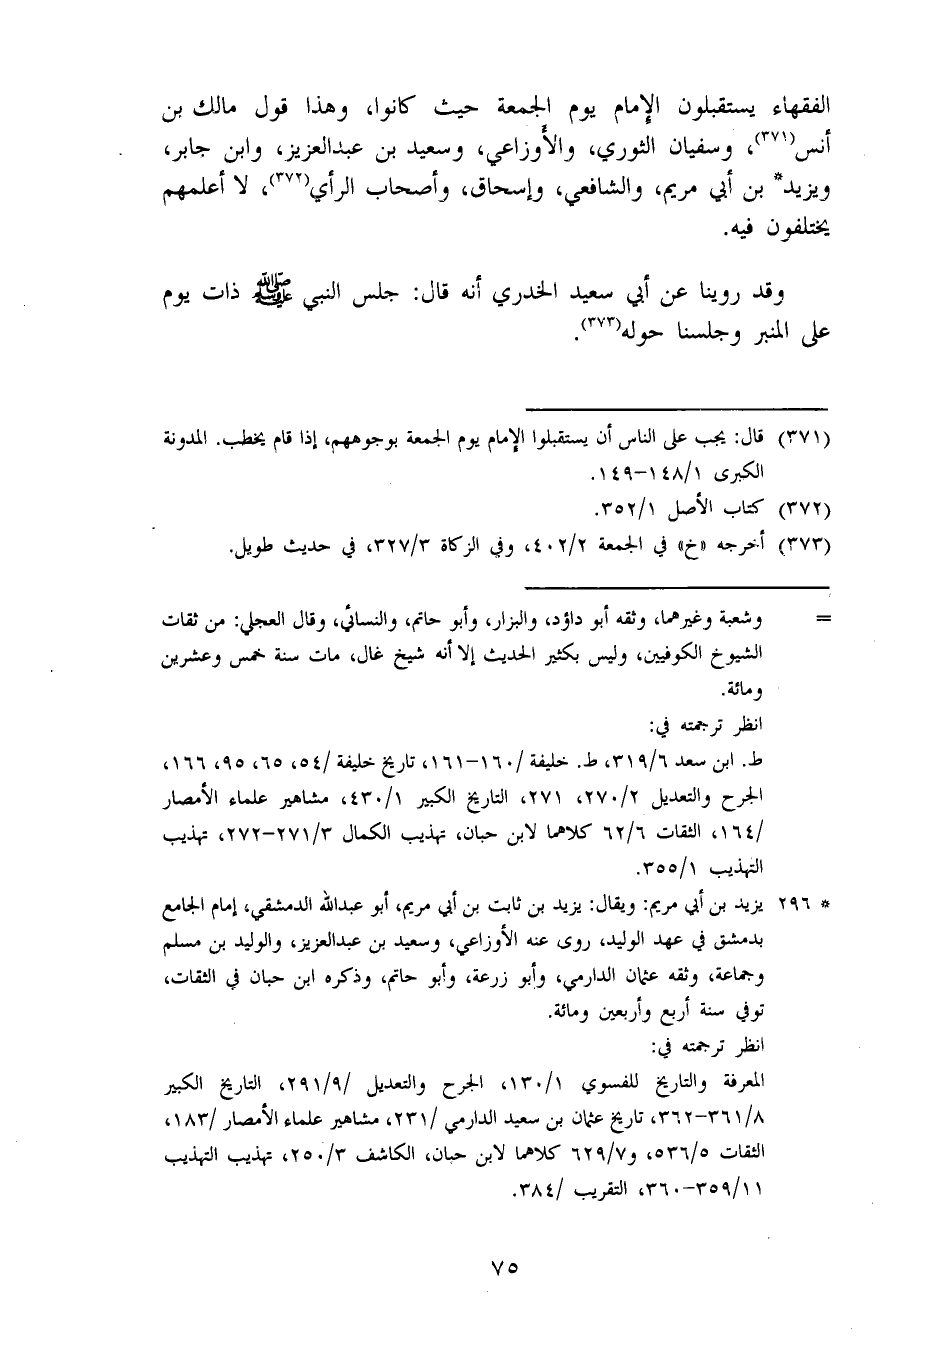 الفقهاء يستقبلون الإمام يوم الجمعة حيث كانوا، وهذا قول مالك بن
أنس(٣٧١)، وسفيان الثوري، والأوزاعي، وسعيد بن عبدالعزيز، وابن جابر،
ويزيد* بن أبي مريم، والشافعي، وإسحاق، وأصحاب الرأي(٣٧٢)، لا أعلمهم
يختلفون فيه.
وقد روينا عن أبي سعيد الخدري أنه قال: جلس النبي ﷺ ذات يوم
على المنبر وجلسنا حوله(٣٧٣).
(٣٧١) قال: يجب على الناس أن يستقبلوا الإمام يوم الجمعة بوجوههم، إذا قام يخطب. المدونة
الكبرى ١/١٤٨-١٤٩.
(٣٧٢) كتاب الأصل ٣٥٢/١.
(٣٧٣) أخرجه «خ» في الجمعة ٤٠٢/٢، وفي الزكاة ٣٢٧/٣، في حديث طويل.
= وشعبة وغيرهما، وثقه أبو داؤد، والبزار، وأبو حاتم، والنسائي، وقال العجلي: من ثقات
الشيوخ الكوفيين، وليس بكثير الحديث إلا أنه شيخ غال، مات سنة خمس وعشرين
ومائة.
انظر ترجمته في:
ط. ابن سعد ٣١٩/٦، ط. خليفة /١٦٠-١٦١، تاريخ خليفة /٥٤، ٦٥، ٩٥، ١٦٦،
الجرح والتعديل ٢٧٠/٢، ٢٧١، التاريخ الكبير ٤٣٠/١، مشاهير علماء الأمصار
/١٦٤، الثقات ٦٢/٦ كلاهما لابن حبان، تهذيب الكمال ٢٧١/٣-٢٧٢، تهذيب
التهذيب ٣٥٥/١.
* ٢٩٦ يزيد بن أبي مريم: ويقال: يزيد بن ثابت بن أبي مريم، أبو عبدالله الدمشقي، إمام الجامع
بدمشق في عهد الوليد، روى عنه الأوزاعي، وسعيد بن عبدالعزيز، والوليد بن مسلم
وجماعة، وثقه عثمان الدارمي، وأبو زرعة، وأبو حاتم، وذكره ابن حبان في الثقات،
توفي سنة أربع وأربعين ومائة.
انظر ترجمته في:
المعرفة والتاريخ للفسوي ١٣٠/١، الجرح والتعديل /٢٩١/٩، التاريخ الكبير
٣٦١/٨-٣٦٢، تاريخ عثمان بن سعيد الدارمي /٢٣١، مشاهير علماء الأمصار /١٨٣،
الثقات ٥٣٦/٥، و٦٢٩/٧ كلاهما لابن حبان، الكاشف ٢٥٠/٣، تهذيب التهذيب
٣٥٩/١١-٣٦٠، التقريب /٣٨٤.
٧٥